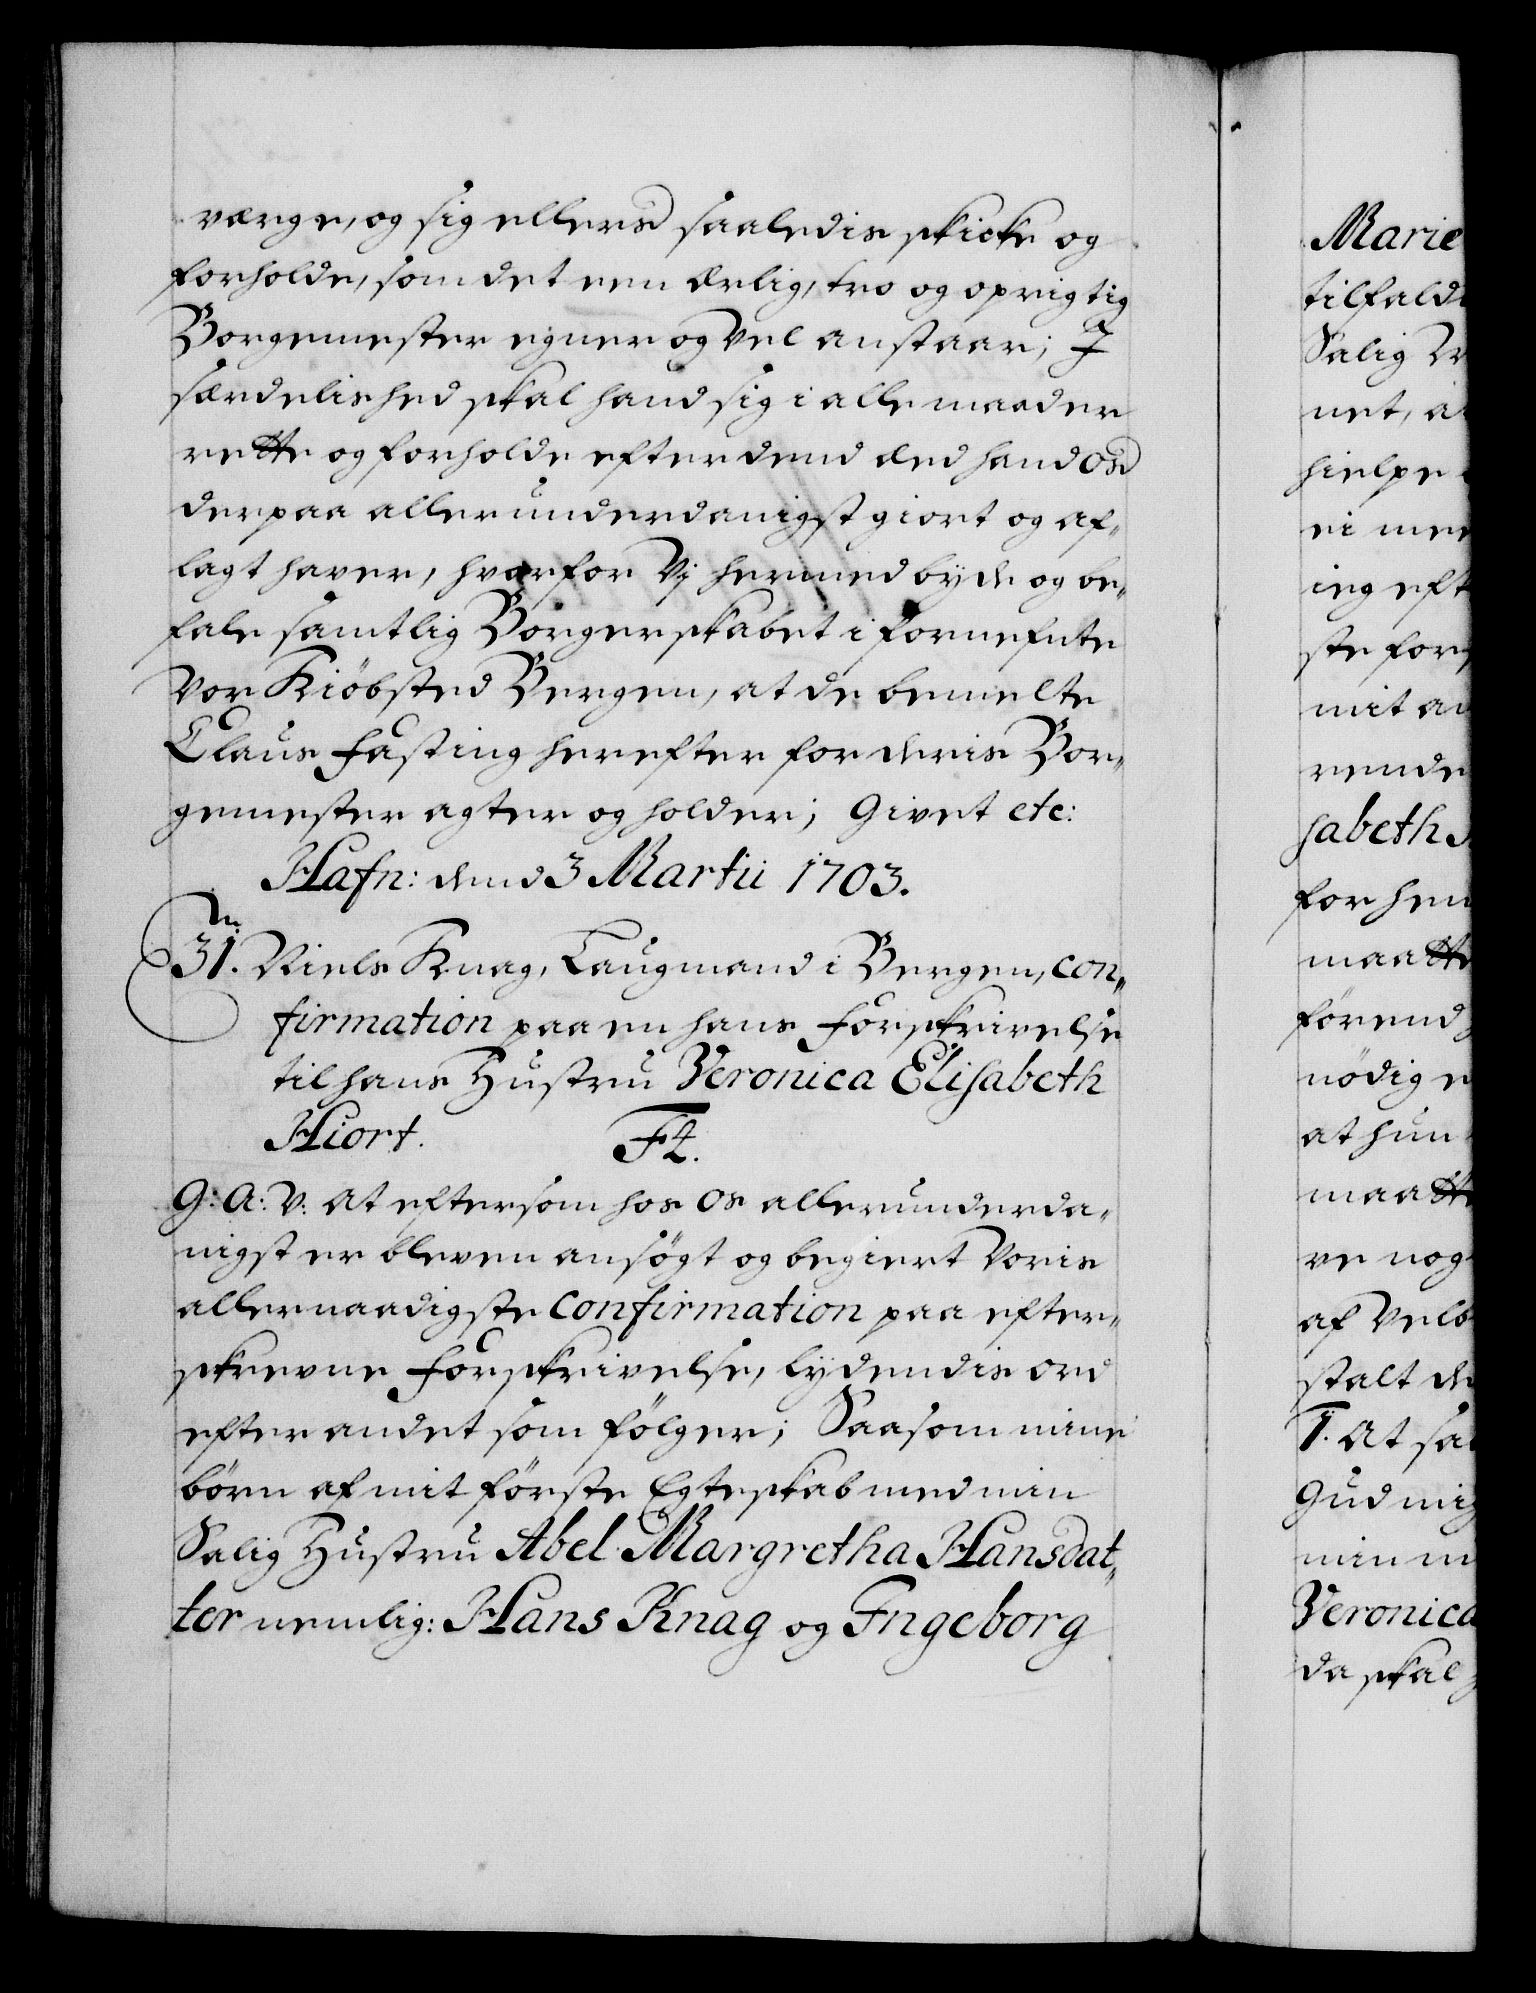 værge, og sig ellers saaledis skicke og
forholde, som det een ærlig, tro og oprigtig
Borgemester egner og vel anstaar; J
særdelished skal hand sig i alle maader
rette og forholde efter dend æed hand os
derpaa allerunderdanigst giort og af„
lagt haver, hvorfor Vj hermed byde og be„
fale samtlig Borgerskabet i fornefnte
vor Kiöbsted Bergen, at de bemelte
Claus Fasting herefter for deris Bor„
gemester agter og holder; Givet etc:
Hafn: dend 3 Martii 1703.
31. Niels Knag, Laugmand i Bergen, con„
firmation paa en hans Forskrivelse
til hans Hustru Veronica Elisabeth
Hiort. F4.
G: A: V: At eftersom hos os allerunderda„
nigst er bleven ansögt og begiert Voris
allernaadigste Confirmation paa efter„
skrevne Forskrivelse, lydendis ord
efter andet som fölger; Saasom mine
börn af mit förste Egteskab med min
Salig Hustru Abel Margretha Hansdat„
ter nemlig: Hans Knag og Ingeborg
Marie
tilfald
Salig
net, a
hielpe
ei mee
ieg eft
ste for
mit an
rende
sabeth
for hen
maatte
förend
nödig
at hun
maatte
re nog
af Velb
stalt de
1. At sa
Gud mig
min m
Veronica
da skal